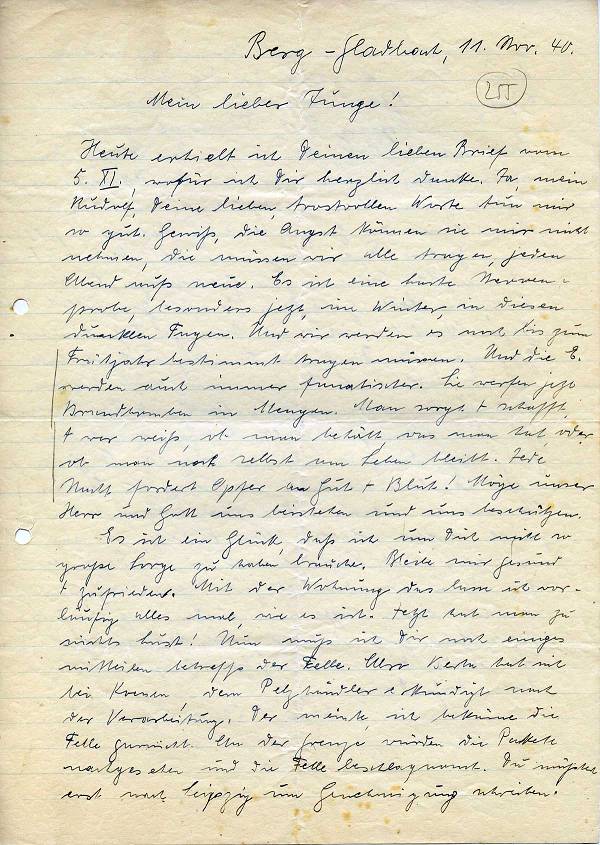 Berg-Gladbach, 11. Nov. 40.
255
Mein lieber Junge!
Heute erhielt ich Deinen lieben Brief vom
5. XI., wofür ich Dir herzlich danke. Ja, mein
Rudolf, Deine lieben, trostvollen Worte tun mir
so gut. Gewiß, die Angst können sie mir nicht
nehmen, die müssen wir alle tragen, jeden
Abend aufs neue. Es ist eine harte Nerven-
probe, besonders jetzt, im Winter, in diesen
dunklen Tagen. Und wir werden es noch bis zum
Frühjahr bestimmt tragen müssen. Und die E.
werden auch immer fanatischer. Sie werfen jetzt
Brandbomben in Mengen. Man sorgt + schafft,
+ wer weiß, ob man behält, was man hat, oder
ob man noch selbst am Leben bleibt. Jede
Nacht fordert Opfer an Gut + Blut! Möge unser
Herr und Gott uns beistehen und uns beschützen.
Es ist ein Glück, daß ich um Dich nicht so
große Sorge zu haben brauche. Bleibe mir gesund
+ zufrieden. Mit der Wohnung das lasse ich vor-
läufig alles mal, wie es ist. Jetzt hat man zu
nichts Lust! Nun muß ich Dir noch einiges
mitteilen betreffs der Felle. Also Berta hat sich
bei Koenen, dem Pelzhändler erkundigt nach
der Verarbeitung. Der meinte, ich bekäme die
Felle gar nicht. An der Grenze würden die Pakete
nachgesehen und die Felle beschlagnahmt. Du müßtest
erst nach Leipzig um Genehmigung schreiben.